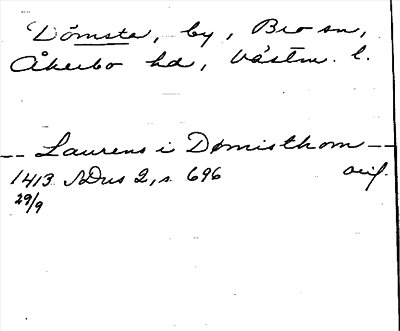 Dömsta, by, Bro sn,
Åkerbo hd, Västm. l.
-- Laurens i Dømisthom --
1413 SDns 2, s 696 orig.
29/9